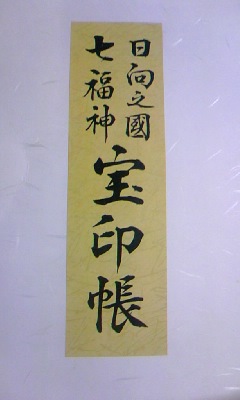 日向之國
七福神
宝印帳